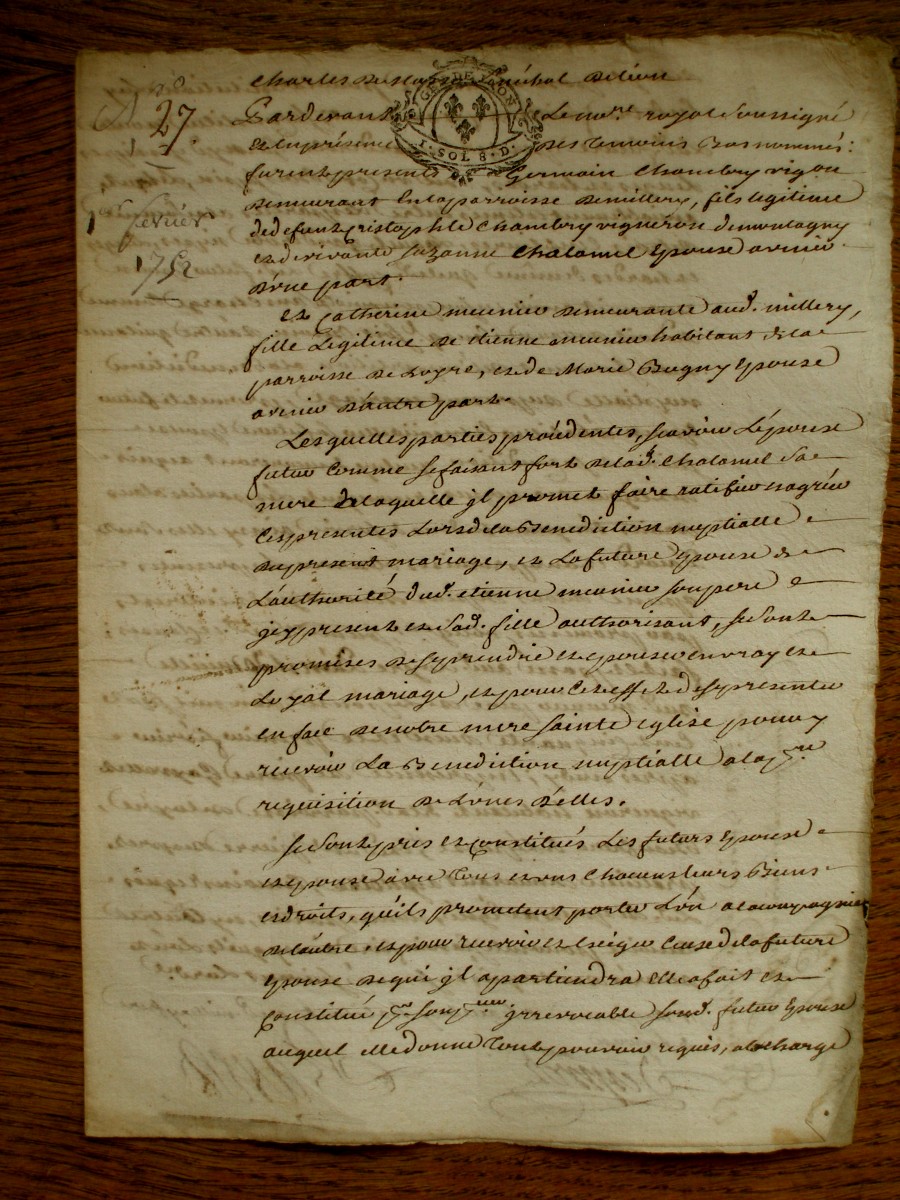 27
1er
fevrier
1752
GEN. DE LYON
1. SOL 8. D.
Charles
Pardevant Le no.re royal Soussigné
et en présence des temoins Bas nommés:
furent presents Germain Chambry vigon
demeurant en la parroisse de millery, fils legitime
de defunt Cristophle Chambry vigneron de montagny
et de vivante Suzanne Chalamel Epoux avenir
d'une part.
et Catherine meunier demeurante aud. millery,
fille Legitime de etienne meunier habitant de la
parroisse de Loyre, et de Marie Bugny Epouse
avenir d'autre part.
Lesquelles parties procédentes, scavoir L'epoux
futur comme se faisant fort de lad. Chalamel Sa
mere de laquelle jl promet faire ratifier et agréer
Ces presentes Lors de la Benediction nuptialle
du present mariage, et La future Epouse de
L'authorité dud. etienne meunier son pere
jcy present et Sad. fille authorisant, se sont
promises de se prendre et epouser en vray et
Loyal mariage, et pour cet effet de se presenter
en face de notre mere sainte eglise pour y
recevoir La Benediction nuptialle a la p.re
requisition de L'une d'elles.
Se sont pris et Constitués Les futurs Epoux
et epouse avec tous et uns chacuns leurs Biens
et droits, qu'ils promettent porter L'un a la compagnie
de l'autre, et pour recevoir et exiger Ceux de la future
Epouse de qui jl appartiendra elle a fait et
Constitué pour son jrrevocable sond. futur Epoux
auquel elle donne tout pouvoir requis, a la charge